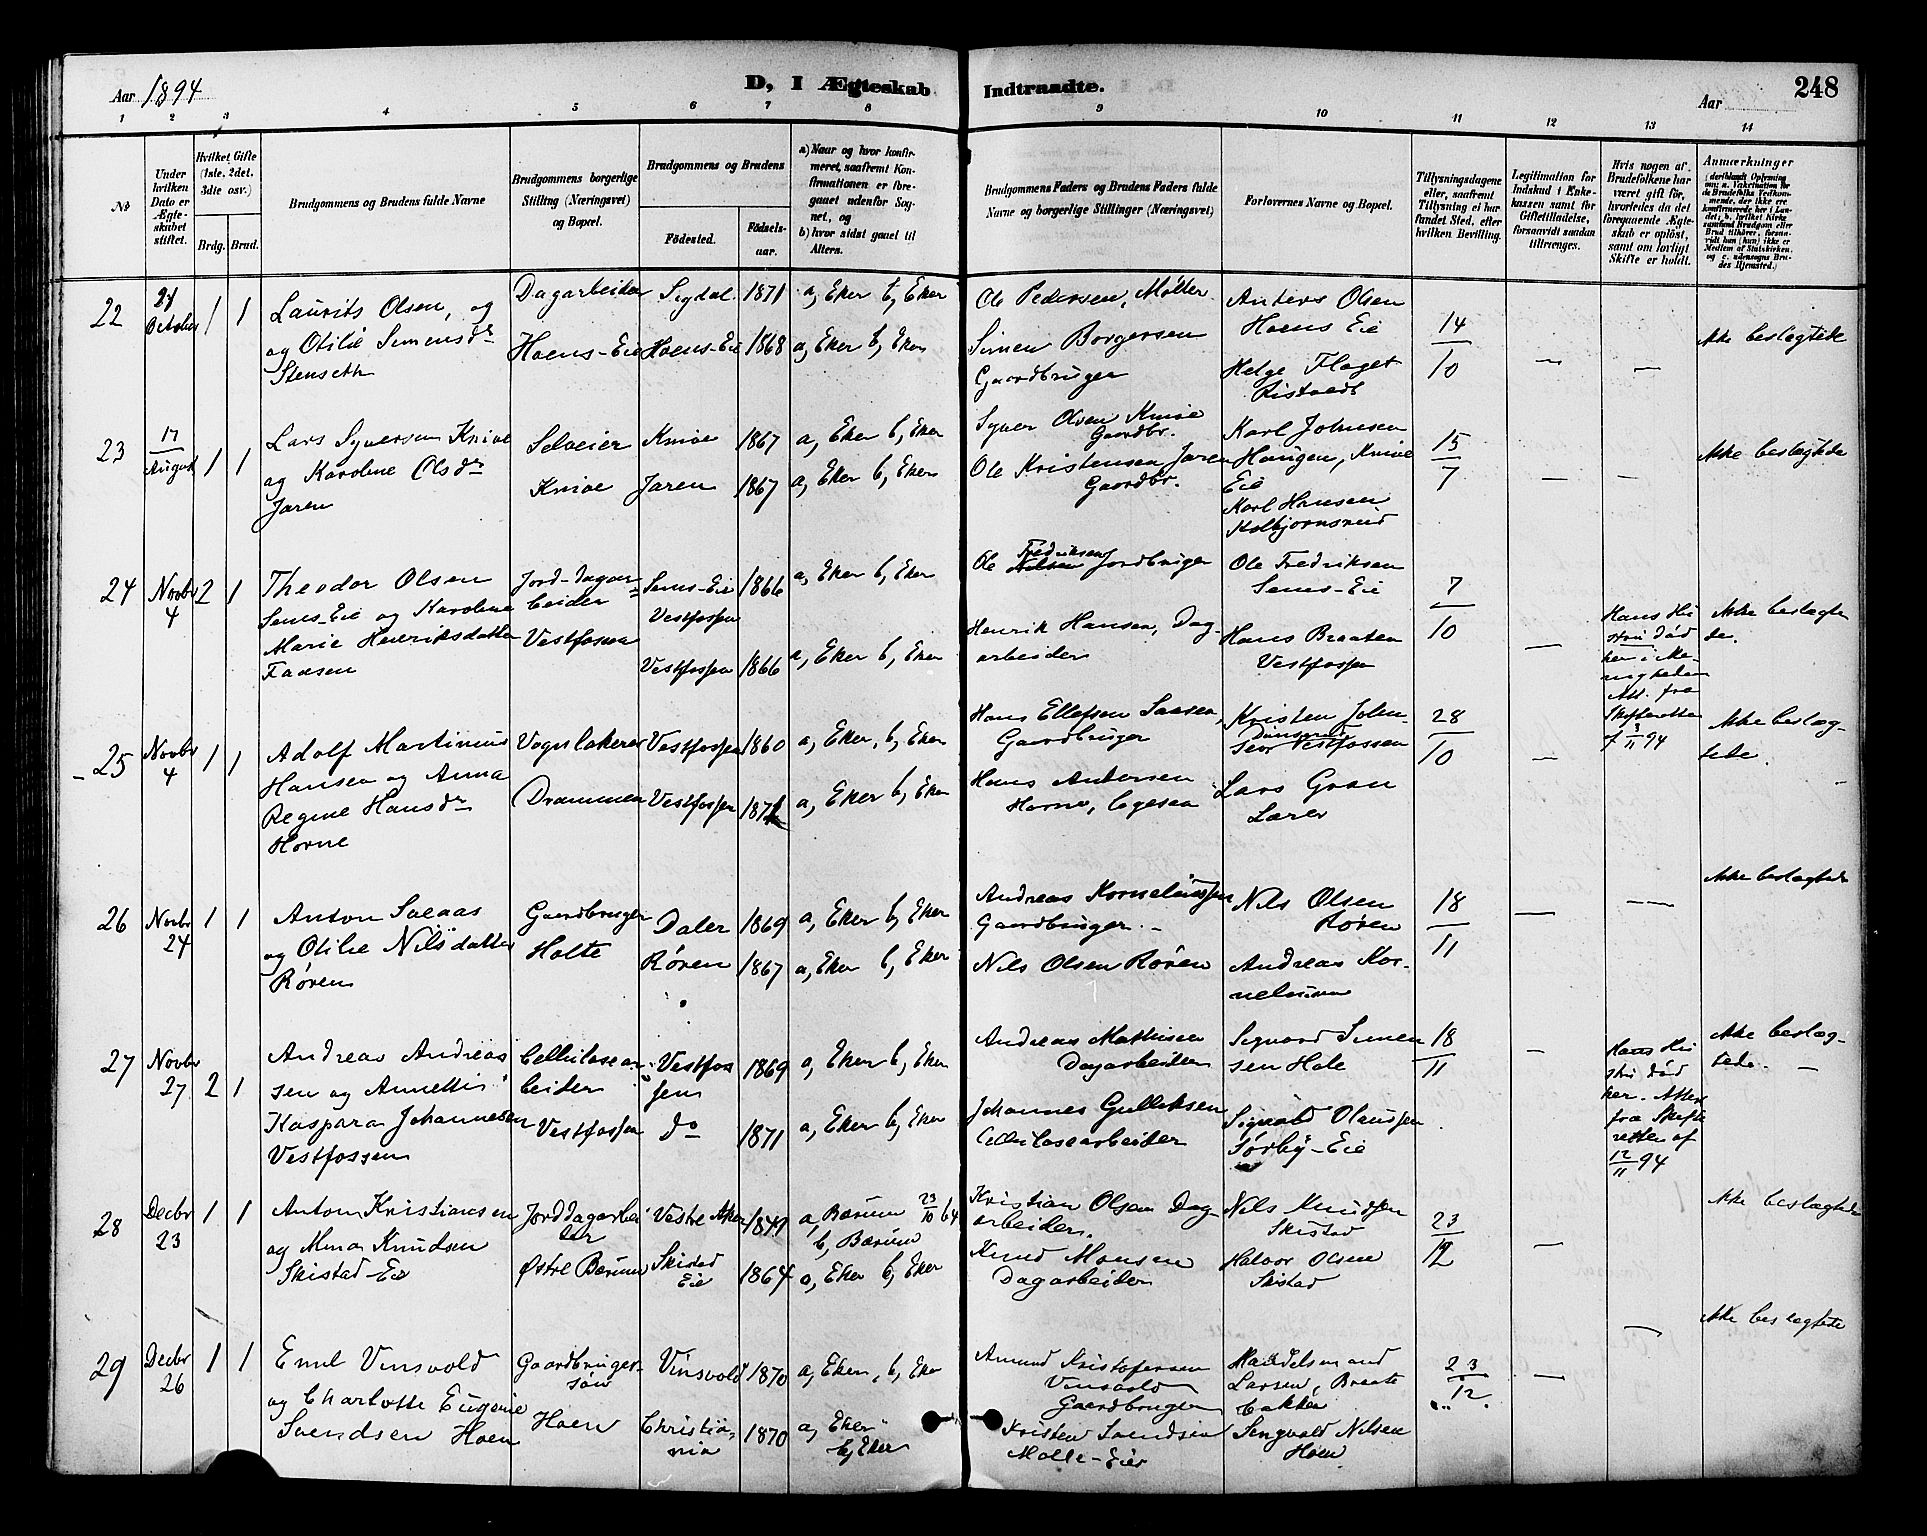 Aar 1894
D, I Ægteskab Indtraadte.
Aar
248
1 2 3 4 5 6 7 8 9 10 11 12 13 14
No
Under hvilken Dato er Ægteskabet stiftet.
Hvilket Gifte (1ste, 2det, 3die osv.)
Brdg. Brud.
Brudgommens og Brudens fulde Navne
Brudgommens borgerlige Stilling (Næringsvei) og Bopæl.
Brudgommens og Brudens
Fødested.
Fødselsaar.
a) Naar og hvor konfirmeret, saafremt Konfirmationen er foregaaet udenfor Sognet, og
b) hvor sidst gaaet til Alters.
Brudgommens Faders og Brudens Faders fulde Navne og borgerlige Stillinger (Næringsvei)
Forlovernes Navne og Bopæl.
Tillysningsdagene eller, saafremt Tillysning ei har fundet Sted, efter hvilken Bevilling.
Legitimation for Indskud i Enkekassen samt for Giftetilladelse, forsaavidt saadan tiltrænges.
Hvis nogen af Brudefolkene har været gift før, hvorledes da det foregaaende Ægteskab er opløst, samt om lovligt Skifte er holdt.
Anmærkninger
22
21 October
1 1
Laurits Olsen, og
og Otilie Simensdr
Stenseth
Dagarbeider
Hoens-Eie
Sigdal 1871
Hoens-Eie 1868
a, Eker b, Eker
a, Eker b, Eker
Ole Pedersen, Møller
Simen Borgersen
Gaardbruger
Anders Olsen
Hoens Eie
Helge Flaget
14
10
—
—
Ikke beslægtede
23
17 August
1 1
Lars Syversen Knive
og Karoline Olsdr
Jaren
Selveier
Knive
Knive 1867
Jaren 1867
a, Eker b, Eker
a, Eker b, Eker
Syver Olsen Knive
Gaardbr.
Ole Kristensen Jaren
Gaardbr.
Karl Johnsen
Haugen, Knive
Eie
Karl Hansen
Kolbjørnsrud
15
7
—
—
Ikke beslægtede
24
Novbr 4
2 1
Theodor Olsen
Sems-Eie og Karoline
Marie Henriksdatter
Faasen
Jord-dagarbeider
Vestfossen
Sems-Eie
Vestfossen 1866
Vestfossen 1866
a, Eker b, Eker
a, Eker b, Eker
Ole Fredriksen Jordbruger
Henrik Hansen, Dagarbeider
Ole Fredriksen
Sems-Eie
Hans Braaten
Vestfossen
7
10
—
Hans Hustru død
her i Menigheden
Att. fra
Skifteretten
af 3/11 94
Ikke beslægtede.
25
Novbr 4
1 1
Adolf Martinius
Hansen og Anna
Regine Hansdr
Horne
Vognlakerer
Drammen
Vestfossen 1860
Vestfossen 1871
a, Eker, b, Eker
a, Eker b, Eker
Hans Ellefsen Saasen,
Gaardbruger
Hans Andersen
Horne,
Kristen Johnsen Vestfossen
Lars Gran
Lærer
28
10
—
Ikke beslægtede.
26
Novbr 24
1 1
Anton Solaas
og Otilie Nilsdatter
Røren
Gaardbruger
Holte
Daler 1869
Røren 1867
a, Eker b, Eker
a, Eker b, Eker
Andreas Korneliussen
Gaardbruger
Nils Olsen Røren
Nils Olsen
Røren
Andreas Korneliussen
18
11
—
—
Ikke beslægtede
27
Novbr 27
2 1
Andreas Andreassen og Annettis
Kaspara Johannesen
Vestfossen
Cellulosearbeider
Vestfossen
Vestfossen 1869
do 1871
a, Eker b, Eker
a, Eker b, Eker
Andreas Mathisen
Dagarbeider
Johannes Gulliksen
Cellulosearbeider
Sigvard Simensen Hole
Sigvald Olaussen
Sørby-Eie
18
11
—
Hans Hustru død
her. Attest
fra Skifteretten af
12/11 94
Ikke beslægtede.
28
Decbr 23
1 1
Anton Kristiansen
og Mina Knudsen
Skistad-Eie
Jorddagarbeider
Østre Bærum
Vestre Aker 1849
Skistad Eie 1864
a, Bærum 23/10 64
b, Bærum
a, Eker b, Eker
Kristian Olsen Dagarbeider.
Knud Monsen
Dagarbeider
Nils Knudsen
Skistad
Halvor Olsen
Skistad
23
12
—
Ikke beslægtede
29
Decbr 26
1 1
Emil Vinsvold
og Charlotte Eugenie
Svendsen Hoen
Gaardbrugersøn
Hoen
Vinsvold 1870
Christiania 1870
a, Eker, b, Eker
a, Eker
b, Eker
Amund Kristofersen
Vinsvold
Gaardbruger
Kristen Svendsen
Mølle-Eier
Handelsmand
Larsen, Braatebakken
Sengvald Nilsen
Hoen
23
12.
—
—
Ikke beslægtede